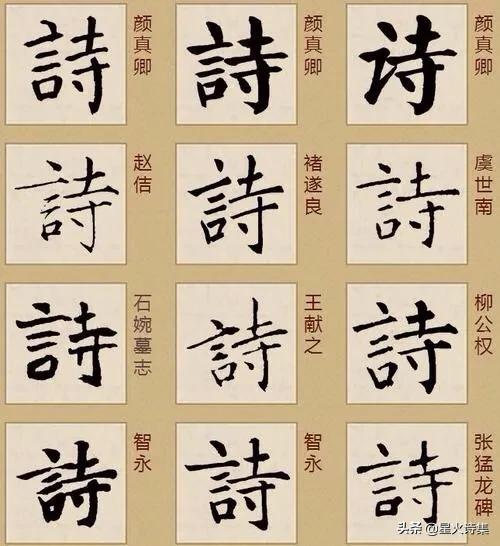 詩 颜真卿
詩 颜真卿
诗 颜真卿
詩 赵佶
詩 褚遂良
詩 虞世南
詩 石婉墓志
詩 王献之
詩 柳公权
詩 智永
詩 智永
詩 张猛龙碑
头条 @星火诗集